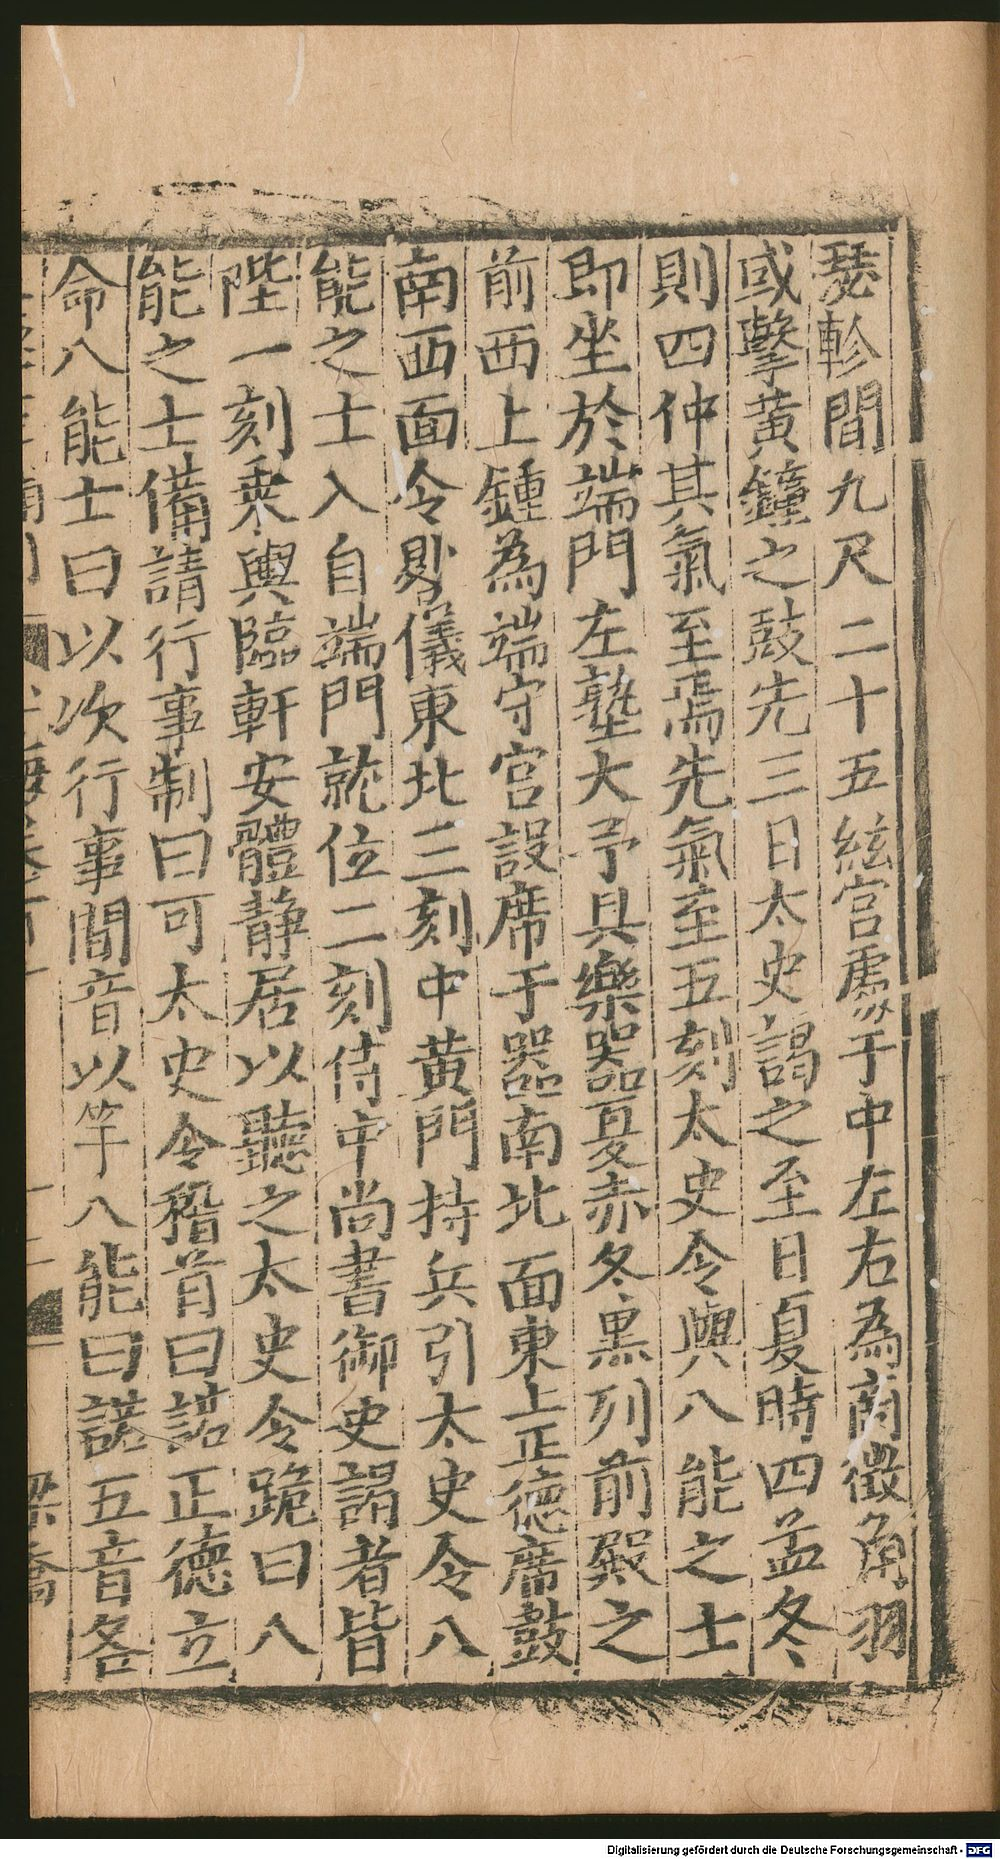 瑟軫間九尺二十五絃宮處于中左右為商徵角羽
或擊黃鐘之鼓先三日太史謁之至日夏時四孟冬
則四仲其氣至焉先氣至五刻太史令與八能之士
即坐於端門左塾大予具樂器夏赤冬黒列前殿之
前西上鍾為端守宮設席于器南北面東上正德席鼓
南西面令晷儀東北三刻中黃門持兵引太史令八
能之士入自端門就位二刻侍中尚書御史謁者皆
陛一刻乗輿臨軒安體静居以聽之太史令跪曰八
能之士備請行事制曰可太史令稽首曰諾正德立
命八能士曰以次行事間音以竽八能曰諾五音各
梁喬
Digitalisierung gefördert durch die Deutsche Forschungsgemeinschaft - DFG